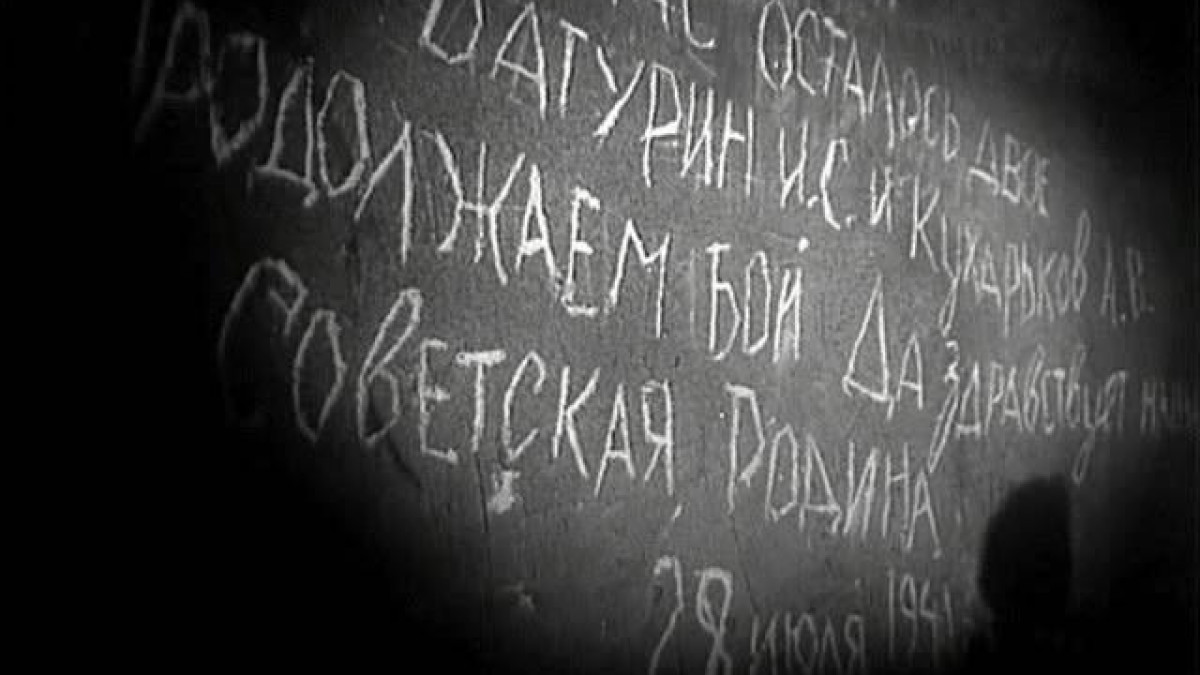 ОСТАЛОСЬ ДВОЕ
БАТУРИН И.С. И КУХАРЬКОВ А.В.
ПРОДОЛЖАЕМ БОЙ ДА ЗДРАВСТВУЕТ
СОВЕТСКАЯ РОДИНА
28 ИЮЛЯ 1941